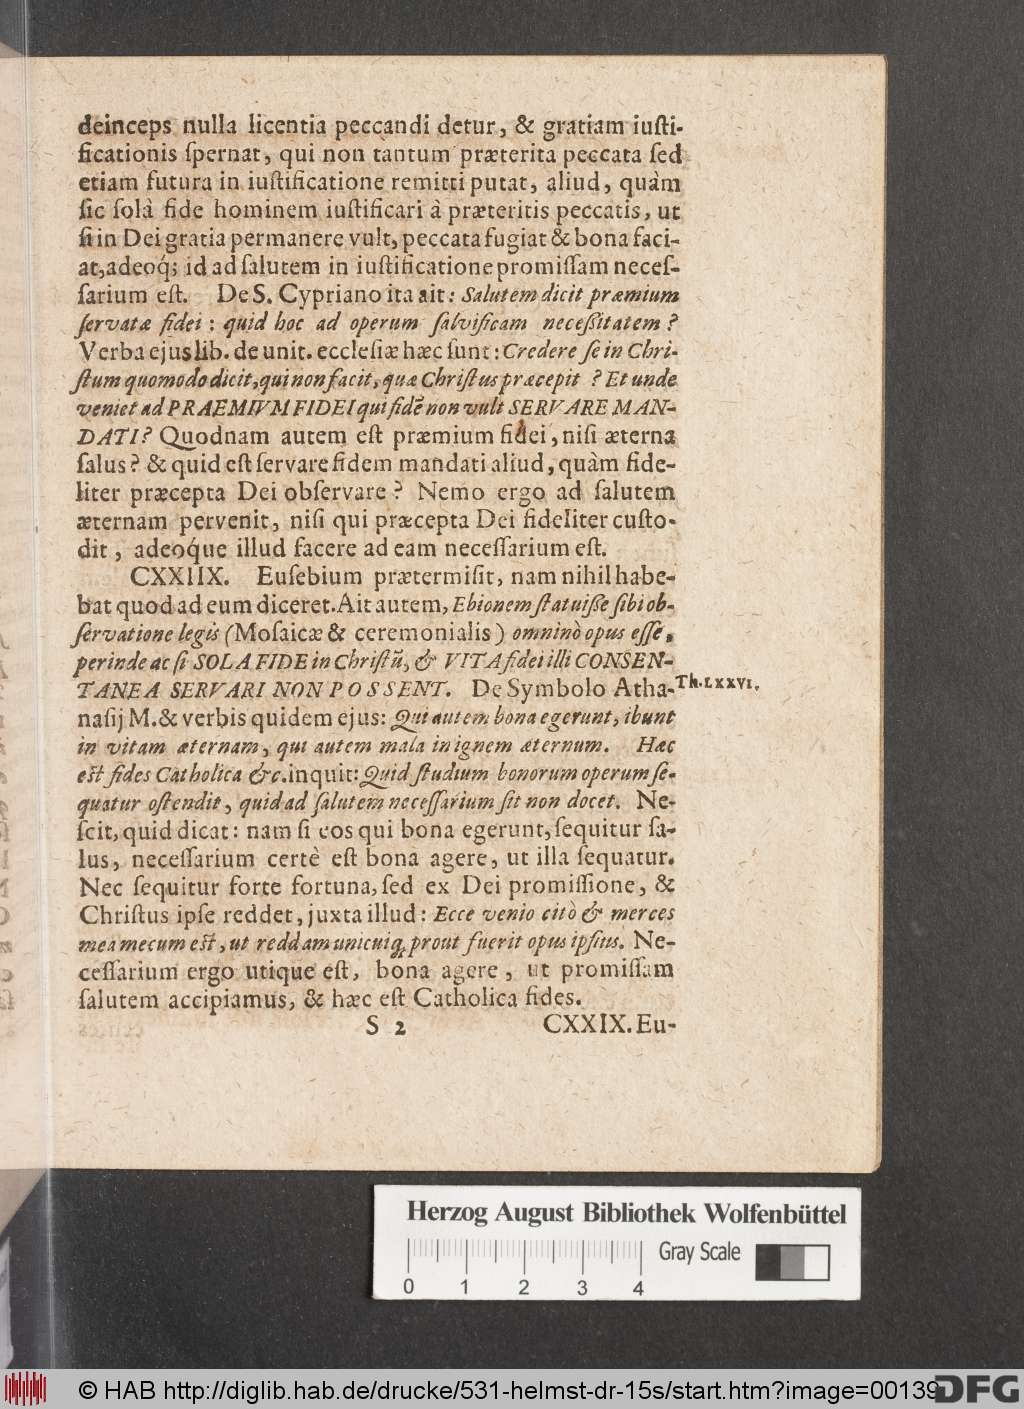 deinceps nulla licentia peccandi detur, & gratiam iuſti-
ficationis ſpernat, qui non tantum præterita peccata ſed
etiam futura in iuſtificatione remitti putat, aliud, quàm
ſic ſolâ fide hominem iuſtificari à præteritis peccatis, ut
ſi in Dei gratia permanere vult, peccata fugiat & bona faci-
at, adeoq́; id ad ſalutem in iuſtificatione promiſſam neceſ-
ſarium eſt. De S. Cypriano ita ait: Salutem dicit præmium
ſervatæ fidei: quid hoc ad operum ſalvificam neceßitatem?
Verba ejus lib. de unit. eccleſiæ hæc ſunt: Credere ſe in Chri-
ſtum quomodo dicit, qui non facit, quæ Chriſtus præcepit? Et unde
veniet ad PRAEMIVM FIDEI qui fidē non vult SERVARE MAN-
DATI? Quodnam autem eſt præmium fidei, niſi æterna
ſalus? & quid eſt ſervare fidem mandati aliud, quàm fide-
liter præcepta Dei obſervare? Nemo ergo ad ſalutem
æternam pervenit, niſi qui præcepta Dei fideliter cuſto-
dit, adeoq́ue illud facere ad eam neceſſarium eſt.
CXXIIX. Euſebium prætermiſit, nam nihil habe-
bat quod ad eum diceret. Ait autem, Ebionem ſtatuiße ſibi ob-
ſervatione legis (Moſaicæ & ceremonialis) omninò opus eſſe,
perinde ac ſi SOLA FIDE in Chriſtū, & VITA fidei illi CONSEN-
TANEA SERVARI NON POSSENT. De Symbolo Atha-
Th. LXXVI.
naſij M. & verbis quidem ejus: Qui autem bona egerunt, ibunt
in vitam æternam, qui autem mala in ignem æternum. Hæc
eſt fides Catholica &c. inquit: Quid ſtudium bonorum operum ſe-
quatur oſtendit, quid ad ſalutem neceſſarium ſit non docet. Ne-
ſcit, quid dicat: nam ſi eos qui bona egerunt, ſequitur ſa-
lus, neceſſarium certè eſt bona agere, ut illa ſequatur.
Nec ſequitur forte fortuna, ſed ex Dei promiſſione, &
Chriſtus ipſe reddet, juxta illud: Ecce venio citò & merces
mea mecum eſt, ut reddam unicuiq; prout fuerit opus ipſius. Ne-
ceſſarium ergo utique eſt, bona agere, ut promiſſam
ſalutem accipiamus, & hæc eſt Catholica fides.
S 2 CXXIX. Eu-
Herzog August Bibliothek Wolfenbüttel
Gray Scale
0 1 2 3 4
© HAB http://diglib.hab.de/drucke/531-helmst-dr-15s/start.htm?image=00139
DFG